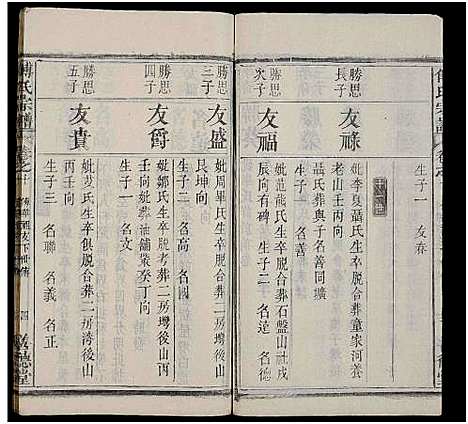 生子一 友春
勝思長子
友祿
妣李夏聶氏生卒脫合葬童家河養
老山王丙向
聶氏葬與子名善同壙
勝思次子
友福
妣范熊氏生卒脫合葬石盤山戌
辰向有碑 生子二 名遠 名德
勝思三子
友盛
妣周畢氏生卒脫合葬二房塆後山
艮坤向 生子二 名高 名國
勝思四子
友爵
妣鄒氏生卒脫考葬二房塆後山丙
壬向妣葬油鋪 癸丁向
生子一 名文
勝思五子
友貴
妣 氏生卒俱脫合葬二房灣後山
丙壬向
生子三 名聯 名義 名正
傅氏宗譜
四